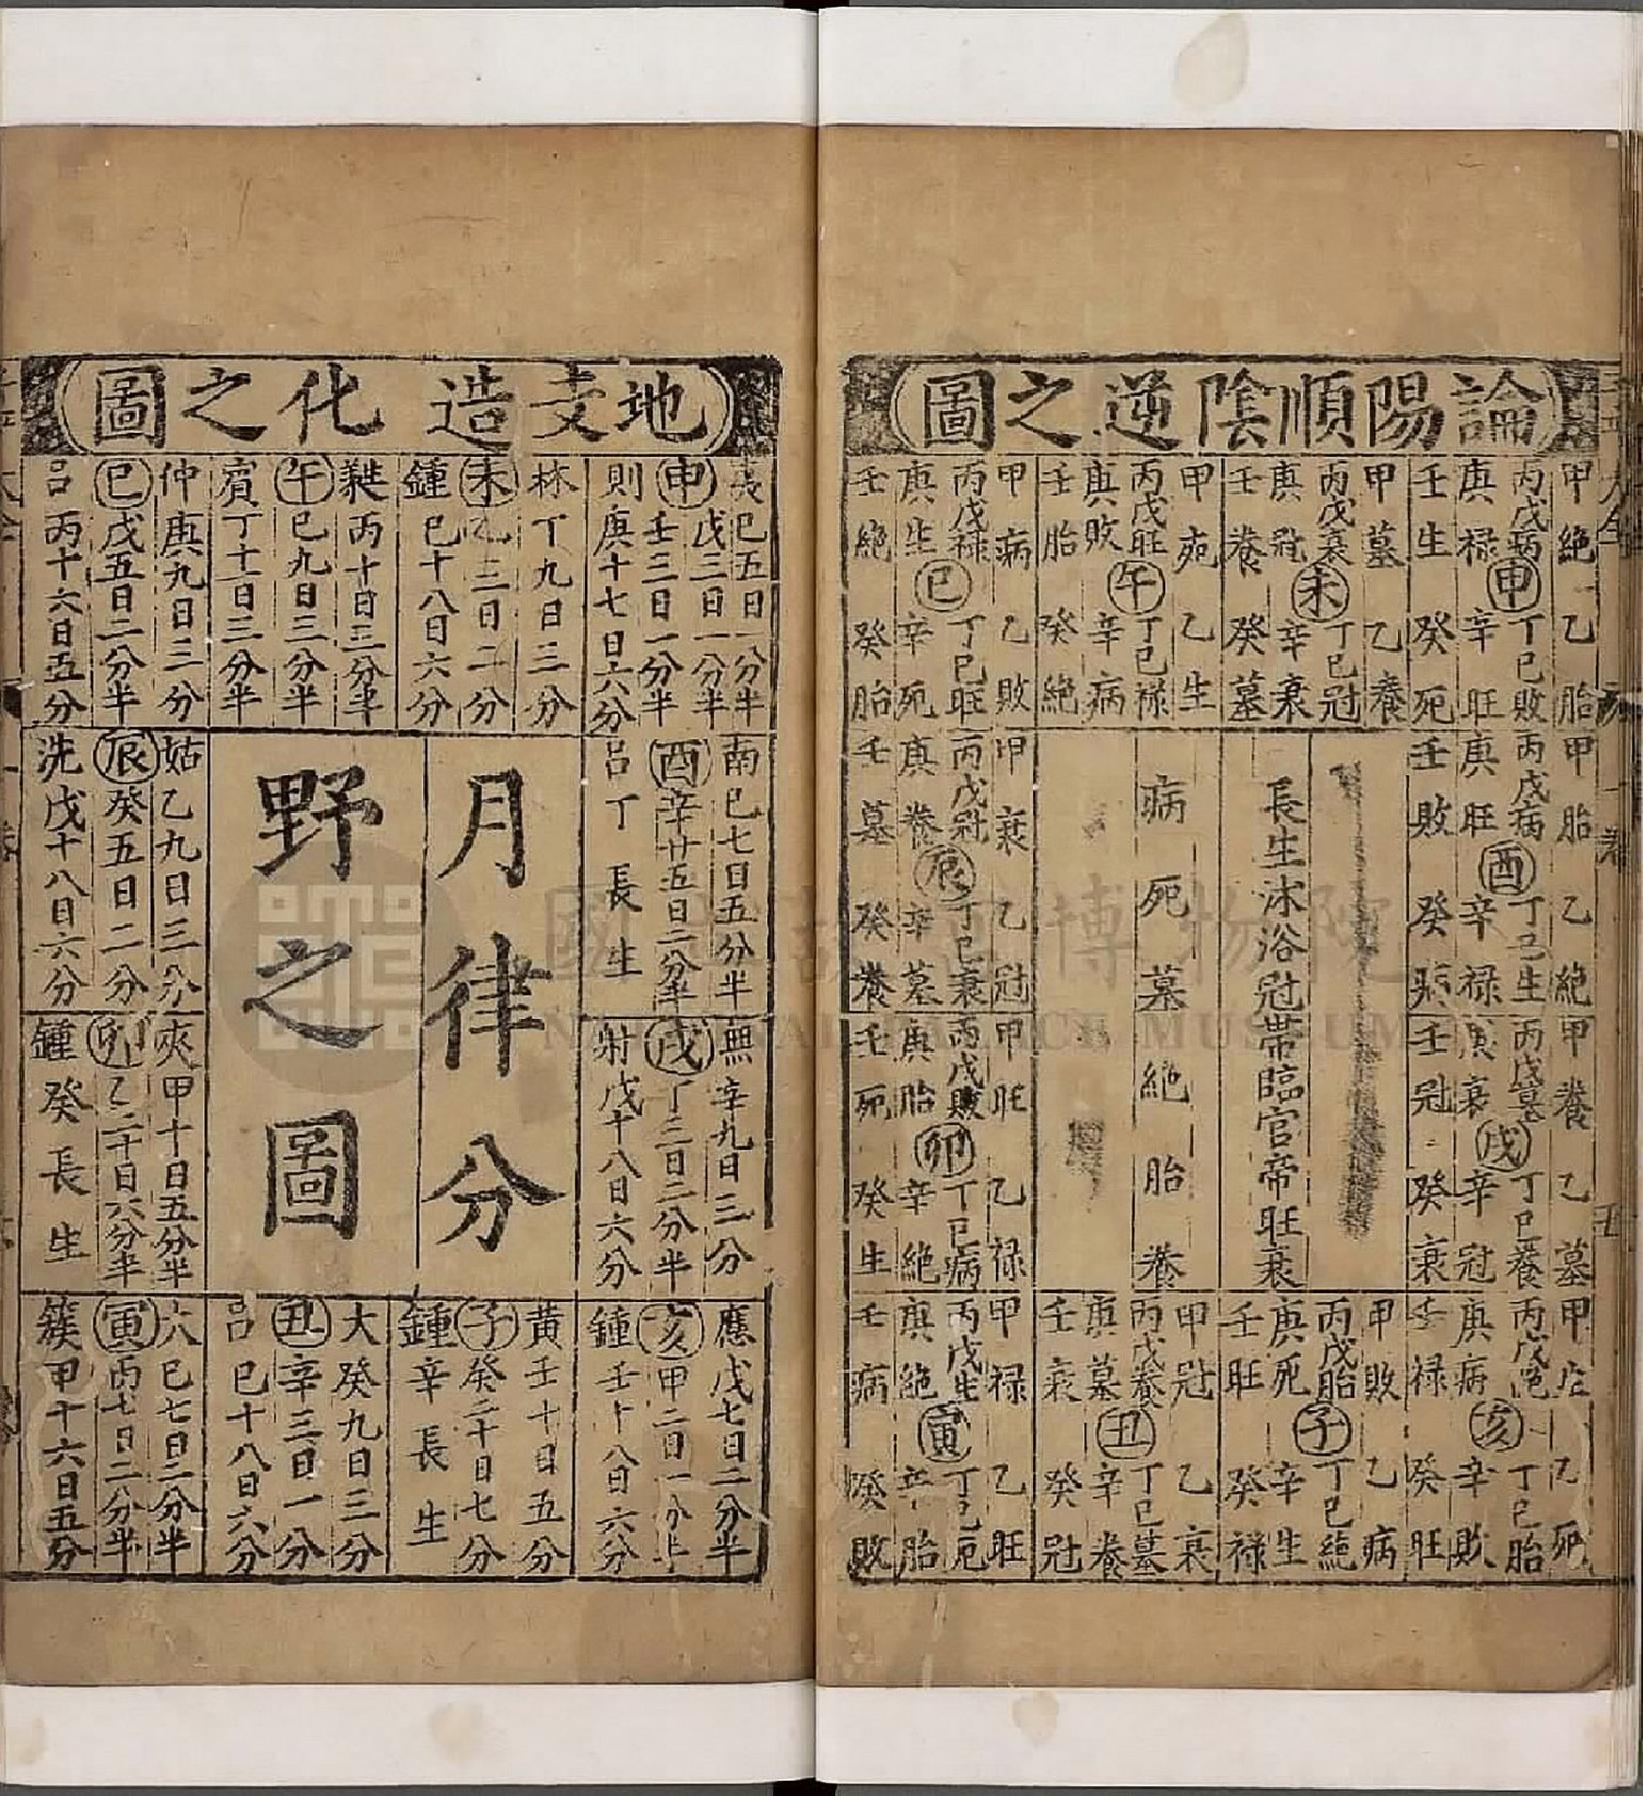 論陽順陰逆之圖
甲絶 乙胎
丙戊病 丁巳敗
申
庚禄 辛旺
壬生 癸死
甲墓 乙養
丙戊衰 丁巳冠
未
庚冠 辛衰
壬養 癸墓
甲死 乙生
丙戊旺 丁巳禄
午
庚敗 辛病
壬胎 癸絶
甲病 乙敗
丙戊禄 丁巳旺
巳
庚生 辛死
壬絶 癸胎
甲胎 乙絶
丙戊病 丁巳生
酉
庚旺 辛禄
壬敗 癸病
長生沐浴冠帶臨官帝旺衰
病死墓絶胎養
甲衰 乙冠
丙戊冠 丁巳衰
辰
庚養 辛墓
壬墓 癸養
甲養 乙墓
丙戊墓 丁巳養
戌
庚衰 辛冠
壬冠 癸衰
甲旺 乙禄
丙戊敗 丁巳病
卯
庚胎 辛絶
壬死 癸生
甲生 乙死
丙戊絶 丁巳胎
亥
庚病 辛敗
壬禄 癸旺
甲敗 乙病
丙戊胎 丁巳絶
子
庚死 辛生
壬旺 癸禄
甲冠 乙衰
丙戊養 丁巳墓
丑
庚墓 辛養
壬衰 癸冠
甲禄 乙旺
丙戊生 丁巳死
寅
庚絶 辛胎
壬病 癸敗
地支造化之圖
夷巳五日一分半
戊三日一分半
申壬三日一分半
則庚十七日六分
林丁九日三分
未乙三日二分
鍾巳十八日六分
蕤丙十日三分半
午巳九日三分半
賓丁十一日三分半
仲庚九日三分
巳戊五日二分半
呂丙十六日五分
南巳七日五分半
酉辛廿五日二分半
呂丁長生
月律分
野之圖
姑乙九日三分
辰癸五日二分
洗戊十八日六分
無辛九日三分
戌丁三日二分半
射戊十八日六分
夾甲十日五分半
卯乙二十日六分半
鍾癸長生
應戊七日二分半
亥甲二日一分半
鍾壬十八日六分
黃壬十日五分
子癸二十日七分
鍾辛長生
大癸九日三分
丑辛三日一分
呂巳十八日六分
大巳七日二分半
寅丙七日二分半
簇甲十六日五分
國立故宮博物院
NATIONAL PALACE MUSEUM